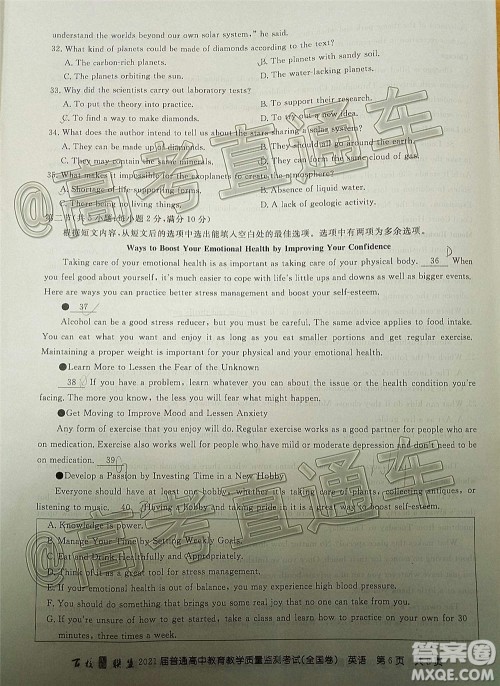 understand the worlds beyond our own solar system," he said.
32. What kind of planets could be made of diamonds according to the text?
A. The carbon-rich planets. B. The planets with sandy soil.
C. The planets orbiting the sun. D. The water-lacking planets.
33. Why did the scientists carry out laboratory tests?
A. To put the theory into practice. B. To support their research.
C. To find a way to make diamonds. D. To try out a new idea.
34. What does the author intend to tell us about the stars sharing a solar system?
A. They can be made up of diamonds. B. They are
C. They may contain the same minerals. D.
35. What makes it impossible for the exoplanets to create the atmosphere?
A. Shortage of life-supporting forms. B. Absence of liquid water.
C. Lack of living things. D. There being no geologic activity.
第二节(共5小题;每小题2分,满分10分)
根据短文内容,从短文后的选项中选出能填入空白处的最佳选项。选项中有两项为多余选项。
Ways to Boost Your Emotional Health by Improving Your Confidence
Taking care of your emotional health is as important as taking care of your physical body. 36 D When
you feel good about yourself, it's much easier to cope with life's little ups and downs as well as bigger events.
Here are ways you can practice better stress management and boost your self-esteem.
● 37
Alcohol can be a good stress reducer, but you must be careful. The same advice applies to food intake.
You can eat what you want and enjoy it as long as you eat smaller portions and get regular exercise.
Maintaining a proper weight is important for your physical and your emotional health.
●Learn More to Lessen the Fear of the Unknown
38 If you have a problem, learn whatever you can about the issue or the health condition you're
facing. The more you know, the less you will fear what might happen.
●Get Moving to Improve Mood and Lessen Anxiety
Any form of exercise you enjoy will do. Regular exercise works as a good partner for people who are
on medication. Exercise also works well for people who have mild or moderate depression and don't need to
be on medication. 39 G
●Develop a Passion by Investing Time in a New Hobby
Everyone should have at least one hobby, whether it is taking care of plants, collecting antiques, or
listening to music. 40 Having a hobby and taking pride in it is a great way to boost your self-confidence.
A. Knowledge is power.
B. Manage Your Time by Setting Weekly Goals.
C. Eat and Drink Healthfully and Appropriately.
D. Think of it as a great tool for stress management.
E. If your emotional health is out of balance, you may experience high blood pressure.
F. You should do something that brings you some real joy that no one can take from you.
G. For minimum benefits, you should do some form of exercise that lasts at least 30 minutes,
three times a week.
百校联盟 2021届普通高中教育教学质量监测考试(全国卷) 英语 第6页
@高考直通车
@高考直通车